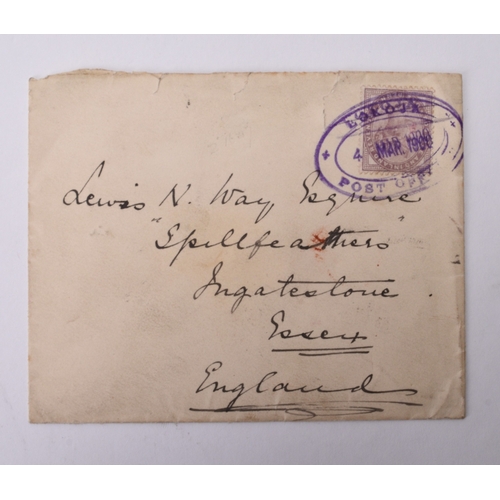 LOKOJA
4 MAR. 1900
POST OFF
Lewis N. Way, Esquire
"Spillfeathers"
Ingatestone
Essex
England